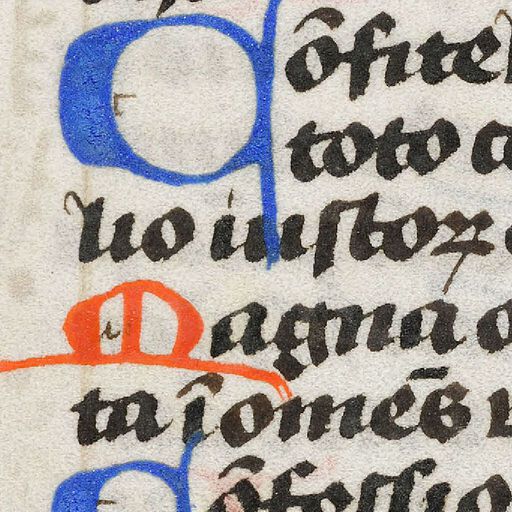 Cōfite
toto c
lio iustoꝝ
Magna o
ta ī omēs
Cōfessio